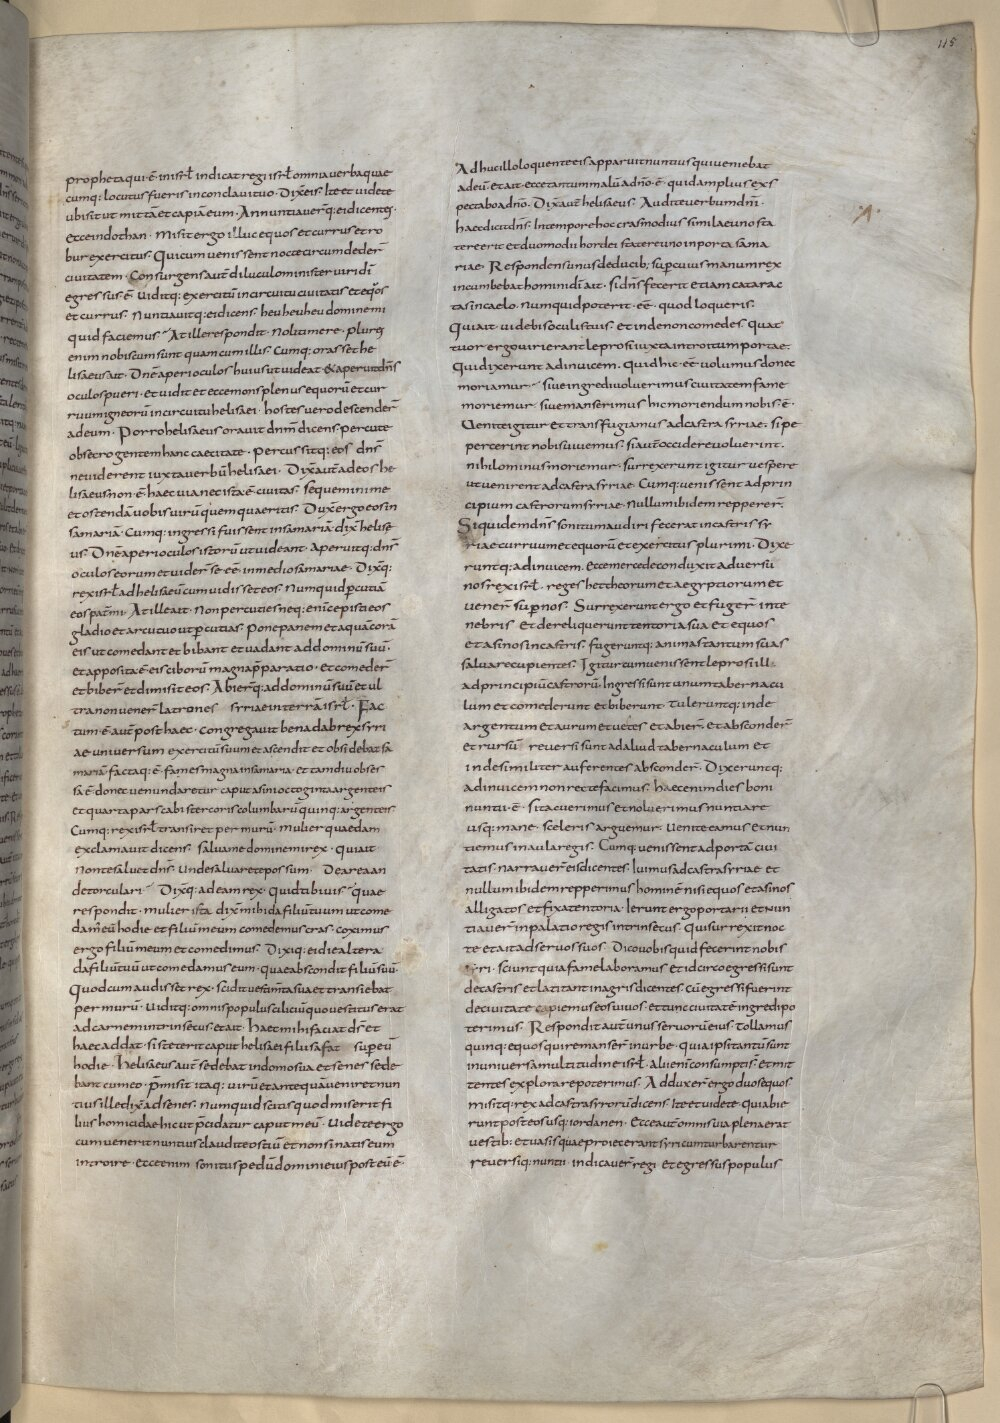 115
propheta qui·ē·in isrł indicat regi isrł omnia verba quae
cumq: locutus fueris in conclavi tuo· Dix̄ eis· Ite et videte
ubi sit ut mittā et capiā eum· Annuntiaver̄q: ei dicentes·
ecce in dothan· Misit ergo illuc equos et currus et ro
bur exercitus· Qui cum venissent nocte circumdeder̄
civitatem· Consurgens aut̄ diluculo minister viri dī
egressus·ē· viditq: exercitū in circuitu civitatis et eq̊s
et currus· Nuntiavitq: ei dicens· heu heu heu domine mi
quid faciemus· At ille respondit· Noli timere· plures
enim nobiscum sunt quam cum illis· Cumq: orasset he
lisaeus ait· Dn̄e aperi oculos huius ut videat· & aperuit dn̄s
oculos pueri· et vidit et ecce mons plenus equorū et cur
ruum igneorū in circuitu helisaei· hostes vero descender̄
ad eum· Porro helisaeus oravit dnm̄ dicens· percute
obsecro gentem hanc caecitate· Percussitq: eos dn̄s
ne viderent iuxta verbū helisaei· Dix̄ aut̄ ad eos he
lisaeus non·ē·haec via nec ista·ē·civitas· sequemini me
et ostendā vobis virū quem quaeritis· Dux̄ ergo eos in
samariā· Cumq: ingressi fuissent in samariā· dix̄ helise
us· Dn̄e aperi oculos istorū ut videant· Aperuitq: dn̄s
oculos eorum et vider̄ se·ēē· in medio samariae· Dix̄q:
rex isrł ad helisaeū cum vidisset eos· Numquid p̄cutiā
eos pat̄ mi· At ille ait· Non percuties neq: enī cepisti eos
gladio et arcu tuo ut p̄cutias· Pone panem et aquā corā
eis ut comedant et bibant et vadant ad dominū suū·
et apposita·ē·eis ciborū magna p̄paratio· et comeder̄
et biber̄ et dimisit eos· Abier̄q: ad dominū suū et ul
tra non vener̄ latrones syriae in terrā isrł· Fac
tum·ē·aut̄ post haec· congregavit benadab rex syri
ae universum exercitū suum et ascendit et obsidebat sa
mariā· factaq:·ē·fames magna in samaria· et tamdiu obses
sa·ē·donec venundaretur caput asini octoginta argenteis
et quarta pars cabi stercoris columbarū quinq: argenteis·
Cumq: rex isrł transiret per murū· mulier quaedam
exclamavit dicens· salva me domine mi rex· qui ait
Non te salvet dn̄s· Unde salvare te possum· De area an
de torculari· Dix̄q: ad eam rex· Quid tibi vis· quae
respondit· mulier ista dix̄ mihi da filiū tuum ut come
dam̄ eū hodie et filium meum comedemus cras· coximus
ergo filiū meum et comedimus· Dixiq: ei die altera
da filiū tuū ut comedamus eum· quae abscondit filiū suū·
Quod cum audisset rex· scidit vestim̄ta sua et transiebat
per murū· viditq: omnis populus ciliciū quo vestitus erat
ad carnem intrinsecus· et ait· Haec mihi faciat dn̄s et
haec addat· si steterit caput helisaei filii safat super eū
hodie· Helisaeus aut̄ sedebat in domo sua et senes sede
bant cum eo· p̄misit itaq: virū et antequā veniret nun
tius ille dix̄ ad senes· Numquid scitis quod miserit fi
lius homicidae hic ut p̄cidatur caput meū· Videte ergo
cum venerit nuntius claudite ostiū et non sinatis eum
introire· ecce enim sonitus pedū domini eius post eū·ē·
Adhuc illo loquente eis apparuit nuntius qui veniebat
ad eū· et ait· ecce tantum malū a dn̄o·ē· quid amplius exs
pectabo a dn̄o· Dix̄ aut̄ helisaeus· Audite verbum dn̄i·
haec dicit dn̄s· In tempore hoc cras modius similae uno sta
tere erit et duo modii hordei statere uno in porta sama
riae· Respondens unus de ducib; super cuius manum rex
incumbebat homini dī ait· si dn̄s fecerit etiam catarac
tas in caelo· numquid poterit·ēē· quod loqueris·
Qui ait· videbis oculis tuis· et inde non comedes· Quat
tuor ergo viri erant leprosi iuxta introitum portae·
Qui dixerunt ad invicem· Quid hic·ēē·volumus donec
moriamur· sive ingredi voluerimus civitatem fame
moriemur· sive manserimus hic moriendum nobis·ē·
Venite igitur et transfugiamus ad castra syriae· si pe
percerint nobis vivemus· si aut̄ occidere voluerint·
nihilominus moriemur· surrexerunt igitur vespere
ut venirent ad castra syriae· Cumq: venissent ad prin
cipium castrorum syriae· Nullum ibidem repperer̄·
Siquidem dn̄s sonitum audiri fecerat in castris sy
riae curruum et equorū et exercitus plurimi· Dixe
runtq: ad invicem· Ecce mercede conduxit adversū
nos rex isrł· reges hettheorum et aegyptiorum et
vener̄ super nos· Surrexerunt ergo et fuger̄ in te
nebris· Et dereliquerunt tentoria sua et equos
et asinos in castris· fugeruntq: animas tantum suas
salvare cupientes· Igitur cum venissent leprosi illi
ad principiū castrorū· Ingressi sunt unum tabernacu
lum et comederunt et biberunt· Tuleruntq: inde
argentum et aurum et vestes et abier̄· et absconder̄
et rursū reversi sunt ad aliud tabernaculum et
inde similiter auferentes absconder̄· Dixeruntq:
ad invicem non recte facimus· haec enim dies boni
nuntii·ē· si tacuerimus et noluerimus nuntiare
usq: mane· sceleris arguemur· Venite eamus et nun
tiemus in aula regis· Cumq: venissent ad portā civi
tatis· narraver̄ eis dicentes· Ivimus ad castra syriae· et
nullum ibidem repperimus hominē nisi equos et asinos
alligatos et fixa tentoria· Ierunt ergo portarii et nun
tiaver̄ in palatio regis intrinsecus· Qui surrexit noc
te et ait ad servos suos· Dico vobis quid fecerint nobis
syri· sciunt quia fame laboramus et idcirco egressi sunt
de castris et latitant in agris dicentes· cū egressi fuerint
de civitate capiemus eos vivos· et tunc civitatē ingredi po
terimus· Respondit aut̄ unus servorū eius· Tollamus
quinq: equos qui remanser̄ in urbe· quia ipsi tantū sunt
in universa multitudine isrł· alii enī consumpti s̄· et mit
tentes explorare poterimus· Adduxer̄ ergo duos equos
misitq: rex ad castra syrorū dicens· Ite et videte· Qui abie
runt post eos usq: iordanen· Ecce aut̄ omnis via plena erat
vestib; et vasis quae proiecerant syri cum turbarentur
reversiq: nuntii· indicaver̄ regi· et egressus populus